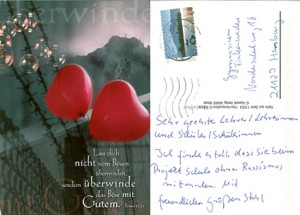 überwinde
Lass dich
nicht vom Bösen
überwinden,
sondern überwinde
das Böse mit
Gutem.
Gymnasium
21129 Hamburg
Sehr geehrte Lehrer/Lehrerinnen
und Schüler/Schülerinnen
Ich finde es toll, dass sie beim
Projekt Schule ohne Rassismus
mitmachen. Mit
freundlichen Grüßen